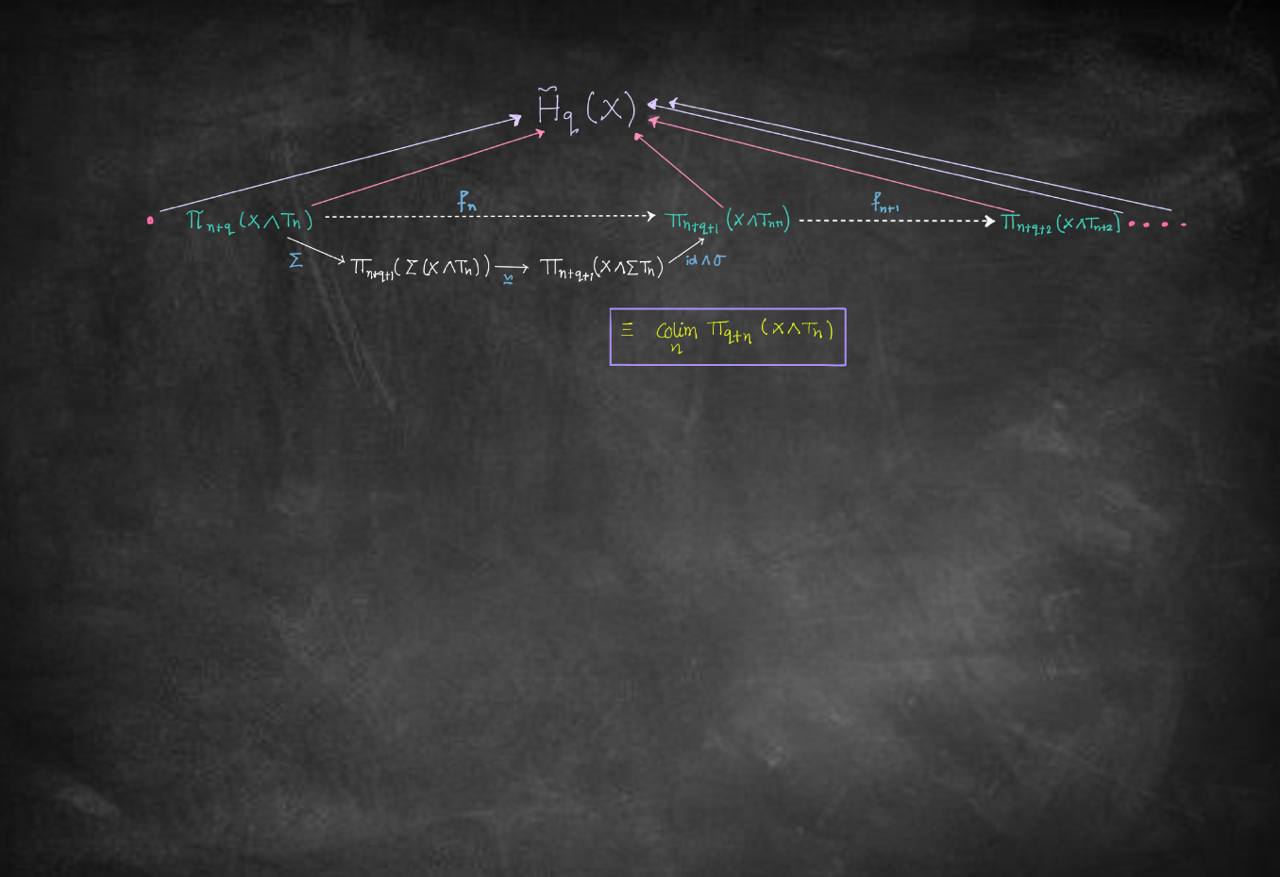 H̃_q (X)
f_n
f_{n+1}
π_{n+q} (X∧T_n)
π_{n+q+1} (X∧T_{n+1})
π_{n+q+2} (X∧T_{n+2})
Σ
π_{n+q+1} (Σ(X∧T_n))
≃
π_{n+q+1} (X∧ΣT_n)
id∧σ
≡ Colim_n π_{q+n} (X∧T_n)